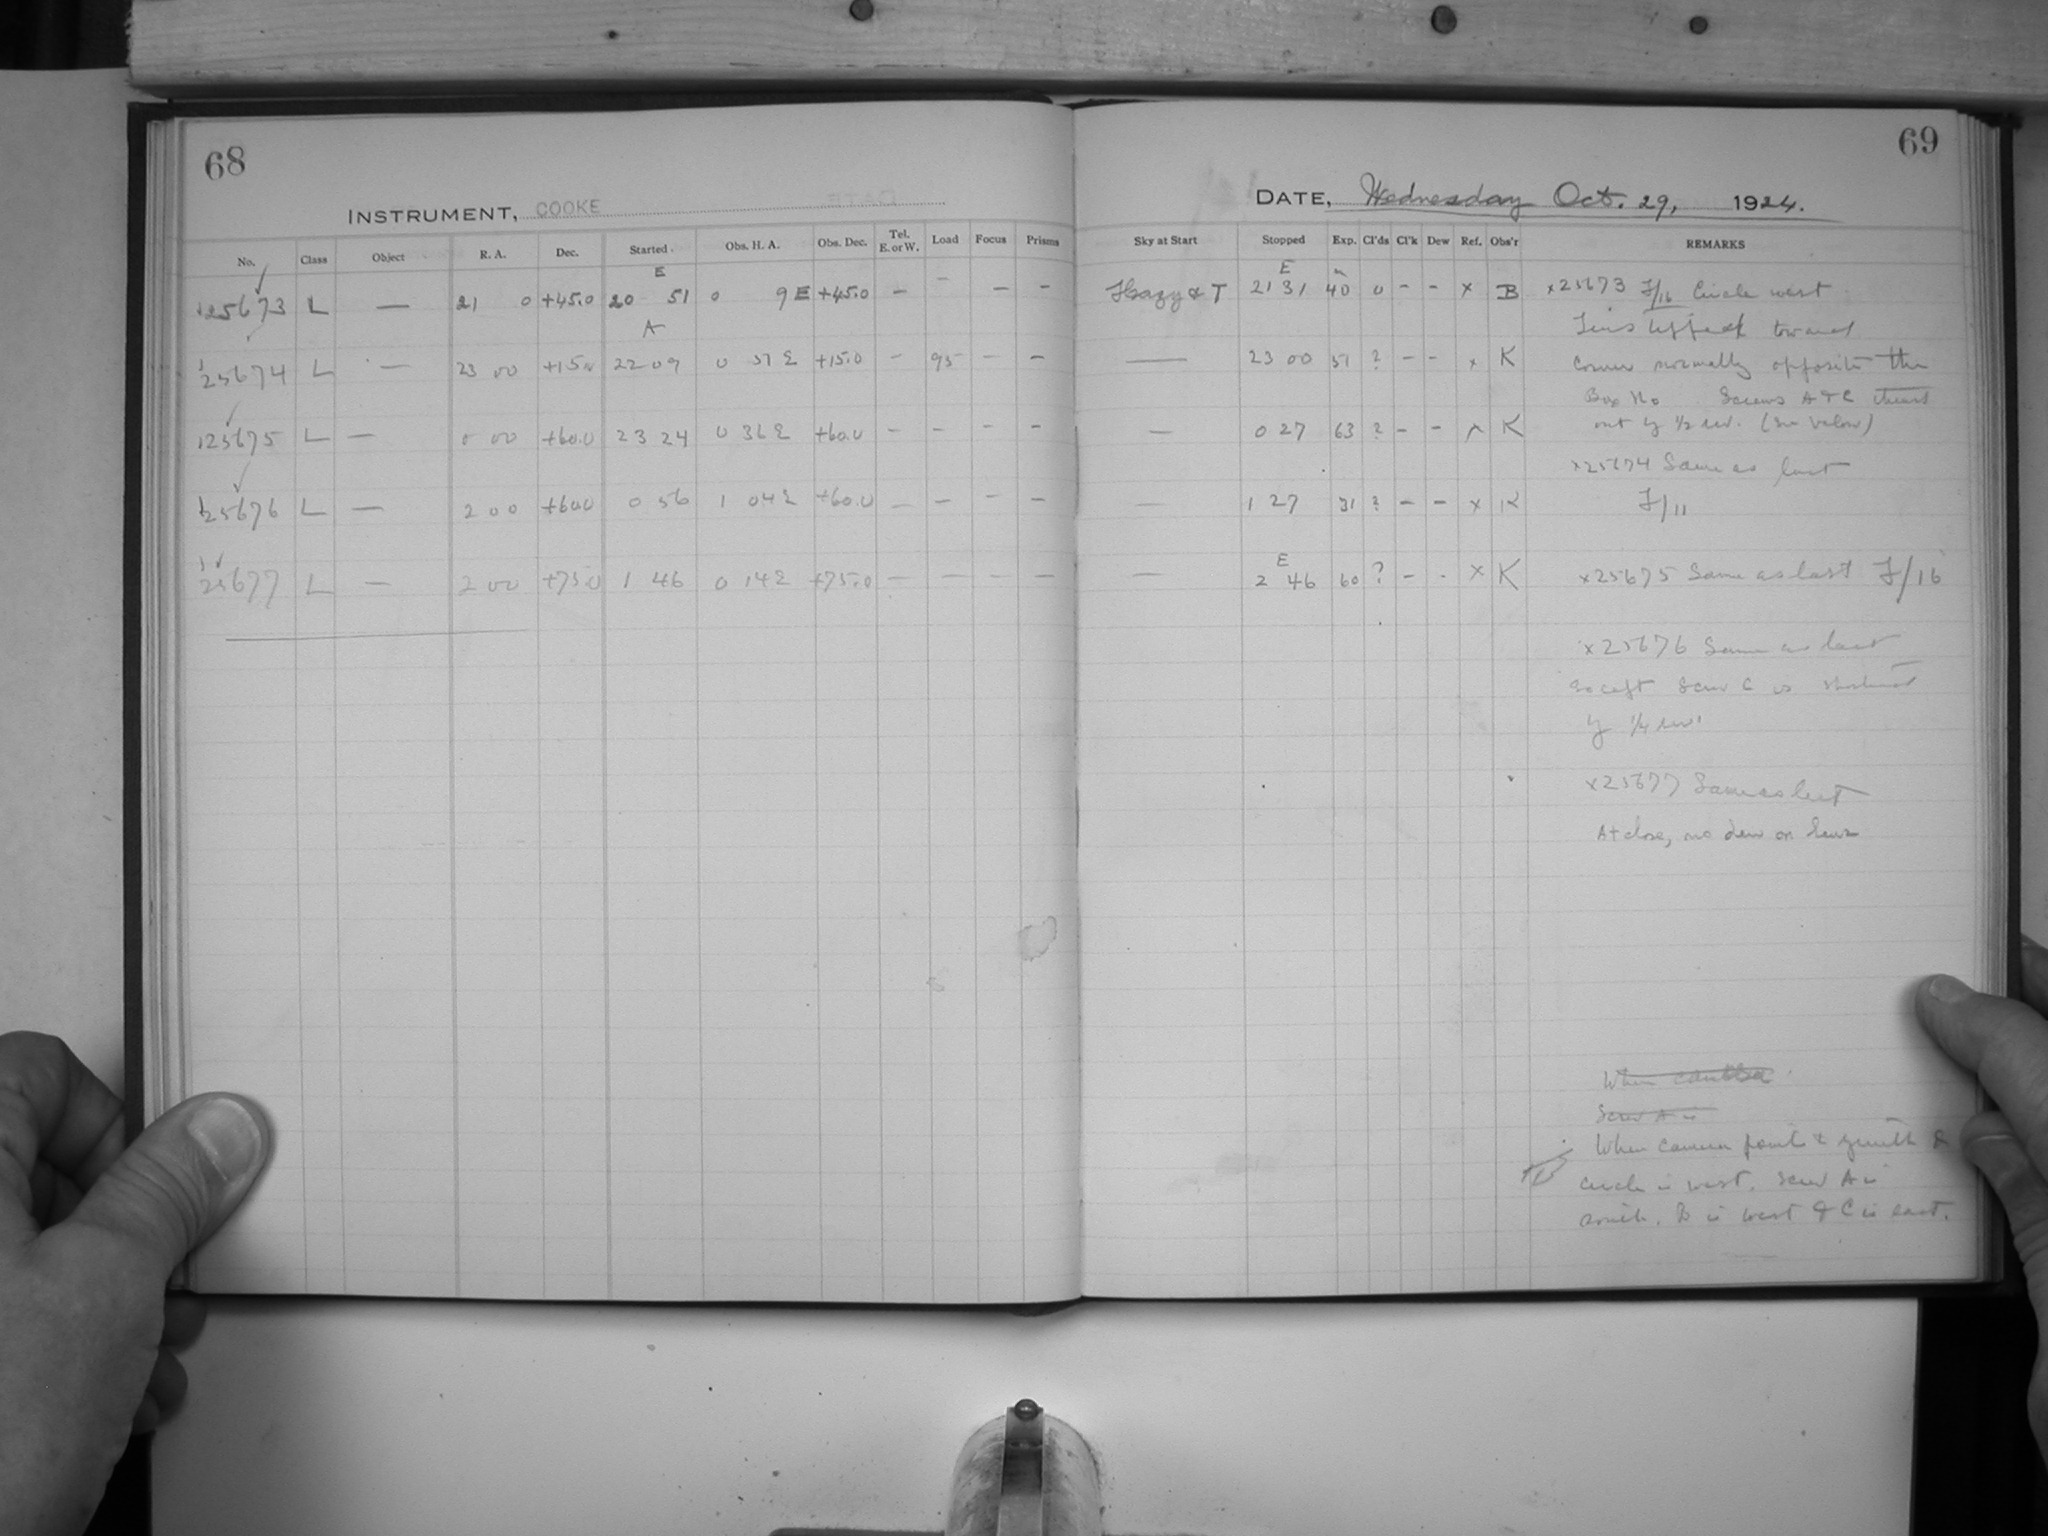 68
INSTRUMENT, COOKE
No. Class Object R. A. Dec. Started Obs. H. A. Obs. Dec. Tel. E. or W. Load Focus Prisms
E
125673 L — 21 0 +45.0 20 51 0 9 E +45.0 — — — —
A
125674 L — 23 00 +15.0 22 09 0 51 E +15.0 — 95 — —
125675 L — 0 00 +60.0 23 24 0 36 E +60.0 — — — —
125676 L — 2 00 +60.0 0 56 1 04 E +60.0 — — — —
125677 L — 2 00 +75.0 1 46 0 14 E +75.0 — — — —
69
DATE, Wednesday Oct. 29, 1924.
Sky at Start Stopped Exp. Cl'ds Cl'k Dew Ref. Obs'r REMARKS
E m
Hazy & T 21 31 40 0 - - x B x25673 F/16 Circle west
Lens tipped toward
— 23 00 51 ? - - x K corner normally opposite the
Box No Screws A + C
— 0 27 63 ? - - x K out by 1/2 rev. (See below)
x25674 Same as last
— 1 27 31 ? - - x K F/11
E
— 2 46 60 ? - - x K x25675 Same as last F/16
x25676 Same as last
except Screw C is
by 1/4 rev.
x25677 Same as last
At close, no dew on lens
When
Screw A is
When camera points to zenith &
circle is west. Screw A is
south. B is west & C is east.